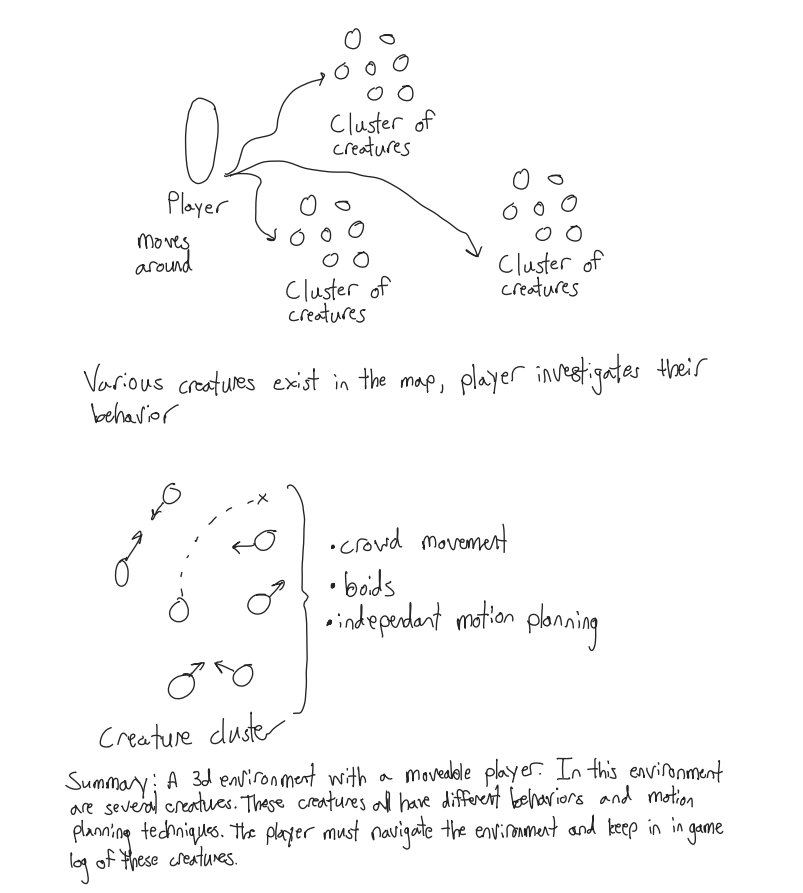 Cluster of
creatures
Player
moves
around
Cluster of
creatures
Cluster of
creatures
Various creatures exist in the map, player investigates their
behavior
x
• crowd movement
• boids
• independant motion planning
Creature cluster
Summary: A 3d environment with a moveable player. In this environment
are several creatues. These creatures all have different behaviors and motion
planning techniques. The player must navigate the environment and keep in in game
log of these creatures.